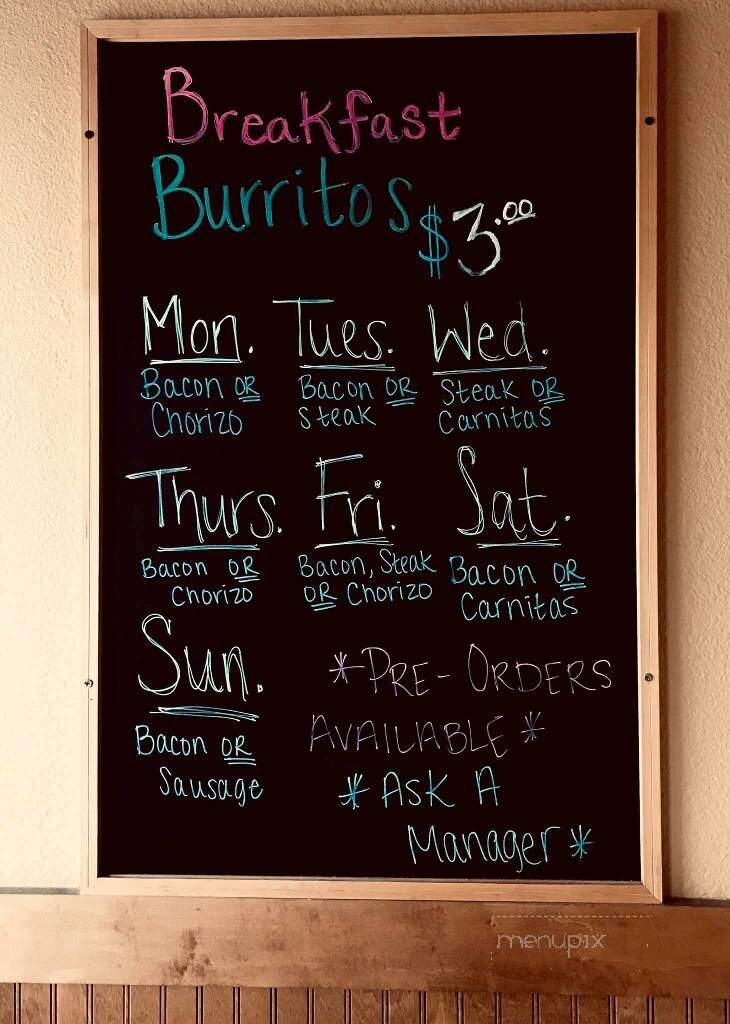 Breakfast
Burritos $3.00
Mon. Tues. Wed.
Bacon OR Chorizo
Bacon OR Steak
Steak OR Carnitas
Thurs. Fri. Sat.
Bacon OR Chorizo
Bacon, Steak OR Chorizo
Bacon OR Carnitas
Sun.
Bacon OR
Sausage
*PRE-ORDERS
AVAILABLE*
*ASK A
Manager*
menupix